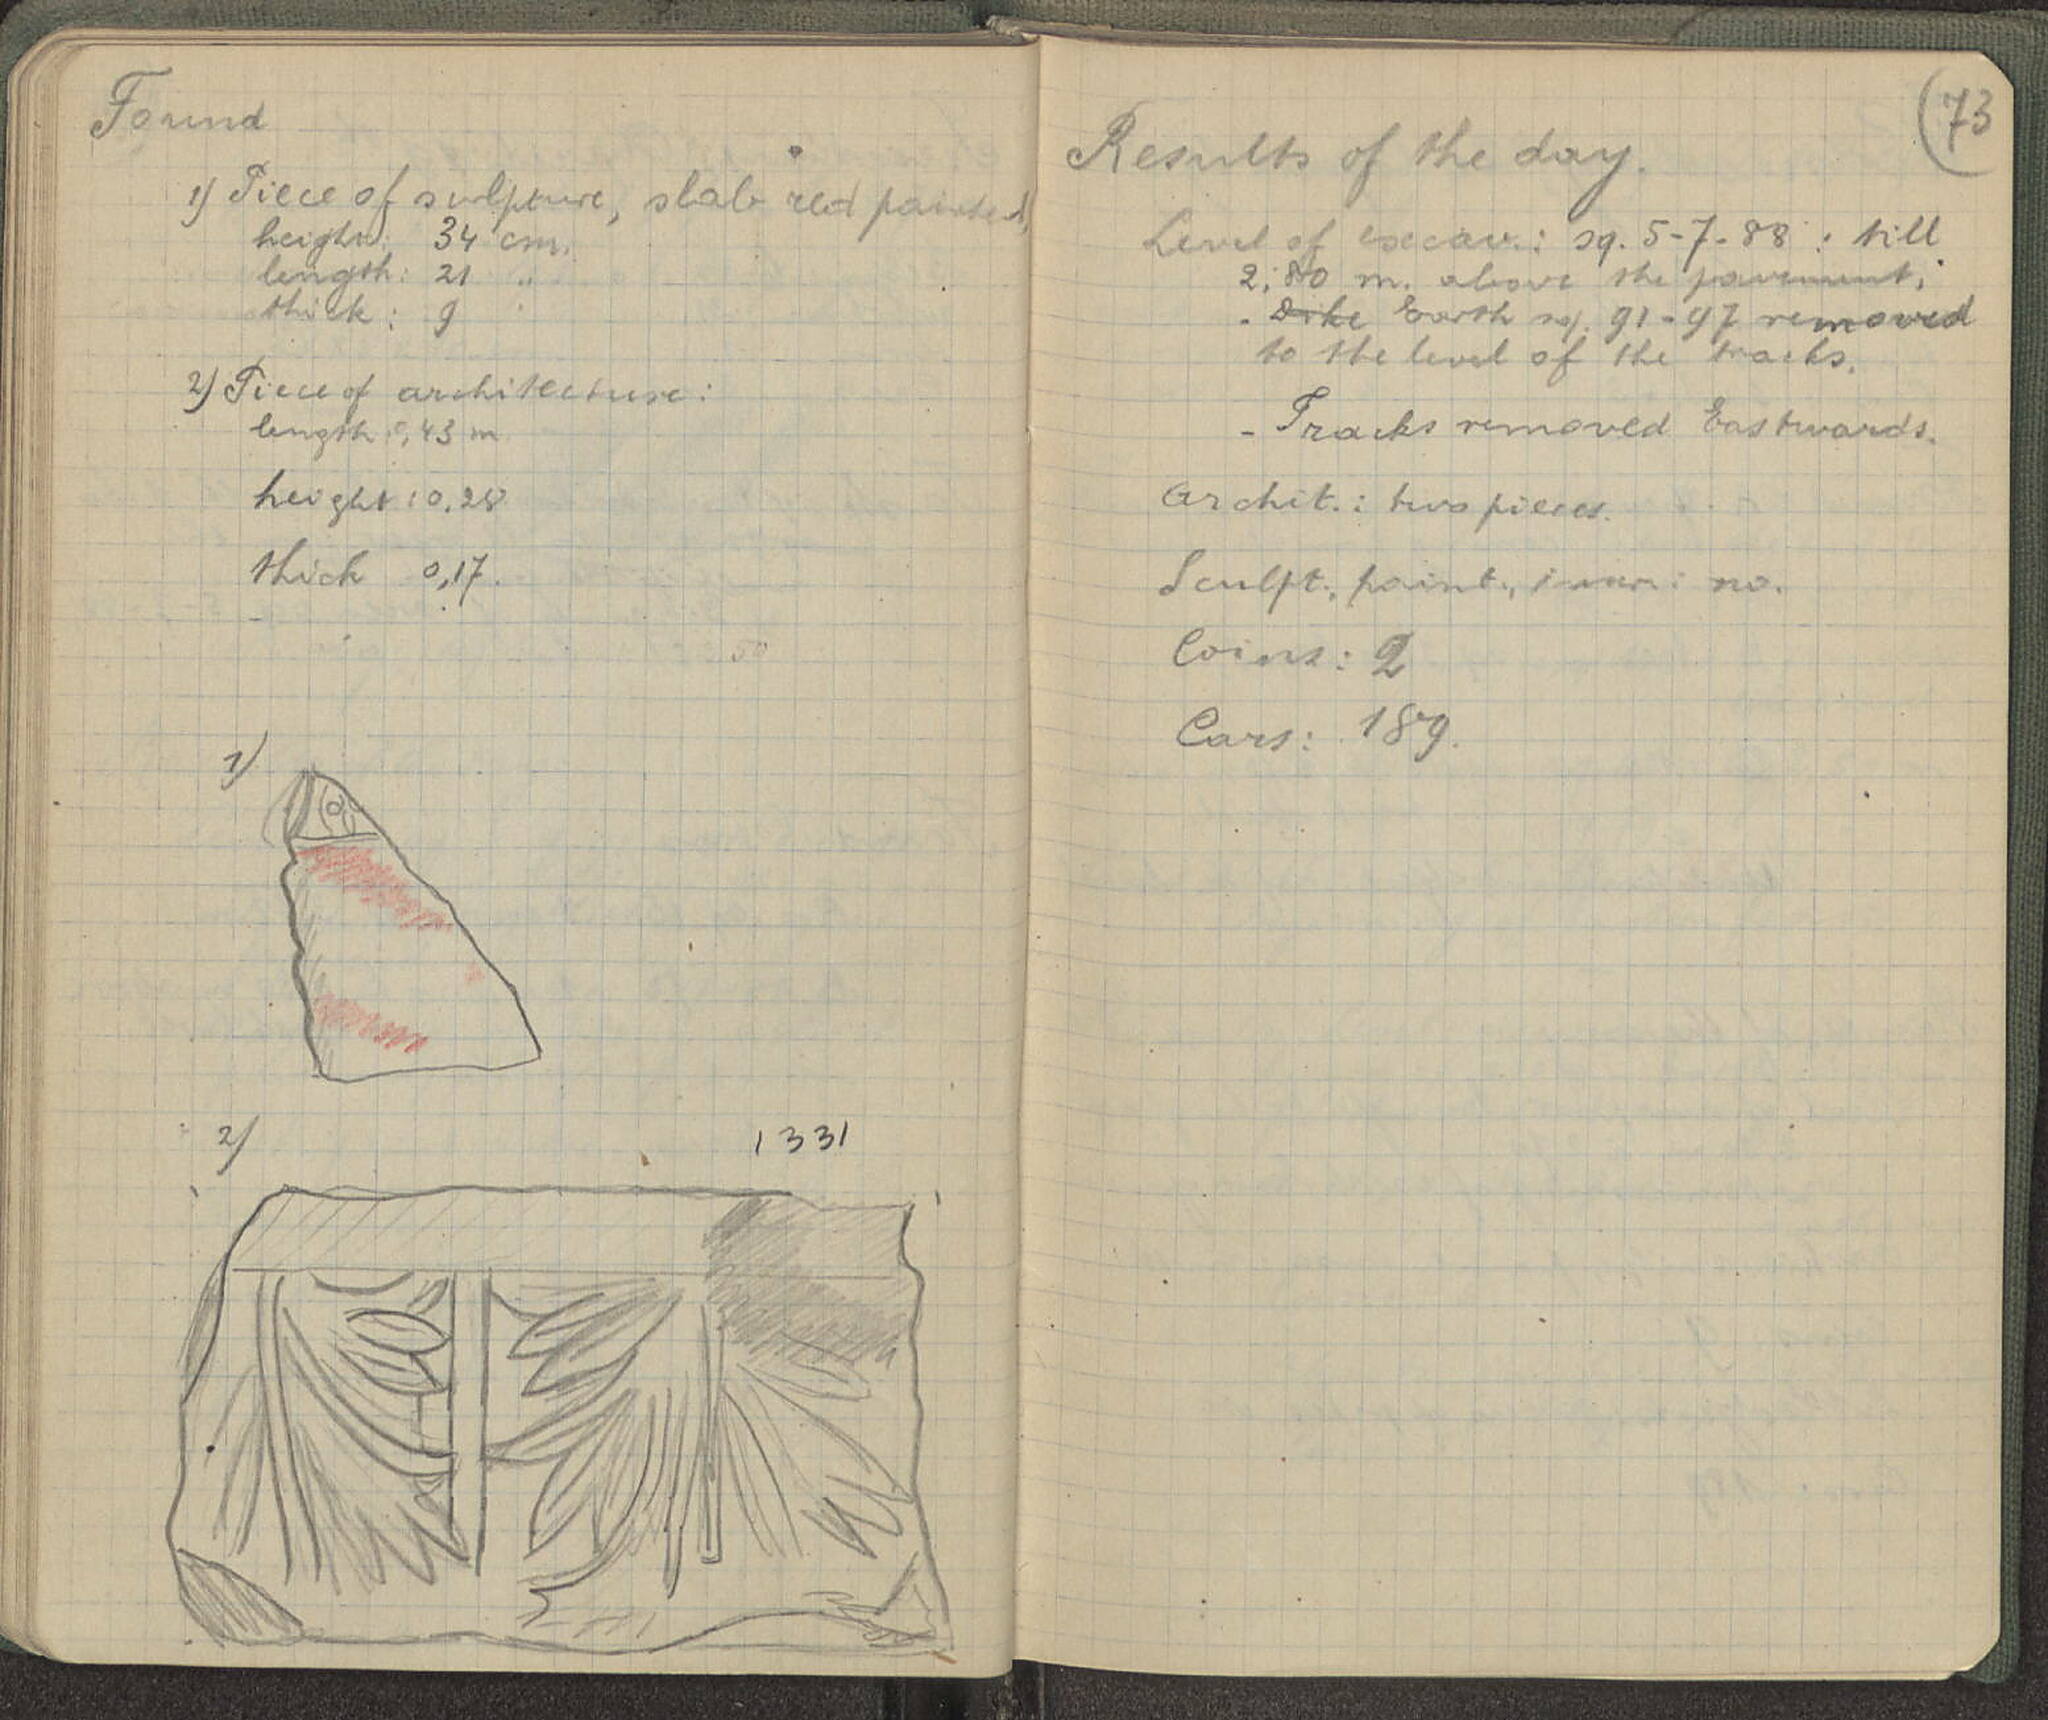 Found
1) Piece of sculpture, slab red painted,
height: 34 cm.
length: 21 "
thick: 9 "
2) Piece of architecture:
length: 0,43 m
height: 0,28
thick 0,17.
50
1)
2)
1331
(73
Results of the day.
Level of excav.: sq. 5-7-88: till
2,80 m. above the pavement.
- Dike Earth sq. 91-97 removed
to the level of the tracks.
- Tracks removed Eastwards.
Archit.: two pieces.
Sculpt., paint., : no.
Coins: 2
Cars: 189.